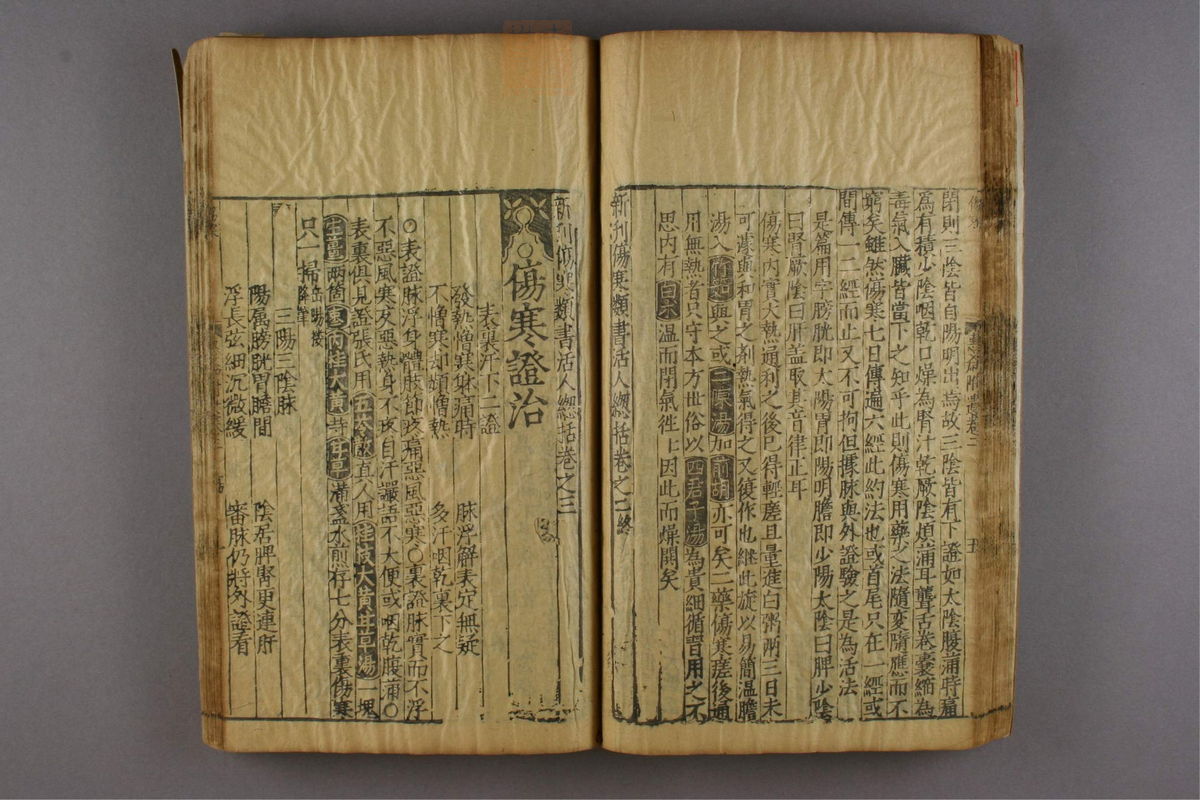 閉則三陰皆自陽明出焉故三陰皆有下證如太陰腹滿時痛
為有積少陰咽乾口燥為腎汁乾厥陰煩滿耳聾舌卷囊縮為
毒氣入臟皆當下之知乎此則傷寒用藥少法隨变隨應而不
窮矣雖然傷寒七日傳遍六經此約法也或首尾只在一經或
間傳一二經而止又不可拘但據脉與外證驗之是為活法
是篇用字膀胱即太陽胃即陽明膽即少陽太陰曰脾少陰
曰腎厥陰曰肝盖取其音律正耳
傷寒內實大熱通利之後已得輕瘥且量進白粥兩三日未
可遽與和胃之劑熱氣得之又復作也継此旋以易簡溫膽
湯入竹茹與之或二陳湯加前胡亦可矣二藥傷寒瘥後通
用無熱者只守本方世俗以四君子湯為貴細循習用之不
思內有白朮溫而閉氣徃上因此而燥悶矣
新刋傷寒類書活人緫括卷之二終
新刋傷寒類書活人緫括卷之三
傷寒證治
表裏汗下二證
發熱憎寒身痛時 脉浮解表定無疑
不憎寒却煩憎熱 多汗咽乾裏下之
○表證脉浮身體肢節疼痛惡風惡寒○裏證脉實而不浮
不惡風寒及惡熱身不疼自汗讝語不大便或咽乾腹滿○
表裏俱見證張氏用五苓散直人用桂枝大黄甘草湯一塊
生薑兩箇棗肉桂大黄并甘草滿盞水煎存七分表裏傷寒
只一掃
三陽三陰脉
陽属膀胱胃膽間 陰居脾腎更連肝
浮長弦細沉微緩 審脉仍將外證看